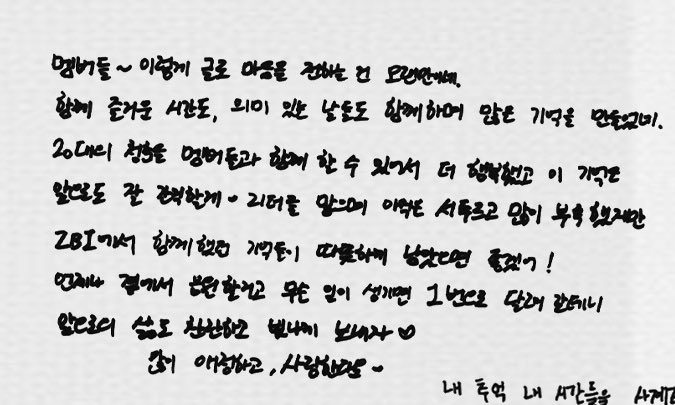 멤버들~ 이렇게 글로 마음을 전하는 건 오랜만이네.
함께 즐거운 시간도, 의미 있는 날들도 함께하며 많은 기억을 만들었네.
20대의 청춘을 멤버들과 함께 할 수 있어서 더 행복했고 이 기억은
앞으로도 잘 간직할게~ 리더를 맡으며 아직은 서투르고 많이 부족했지만
ZBI에서 함께했던 기억들이 따뜻하게 남았으면 좋겠어!
언제나 곁에서 응원할거고 무슨 일이 생기면 1번으로 달려갈테니
앞으로의 삶도 찬란하고 빛나게 보내자♡
많이 애정하고, 사랑한다~
내 추억 내 시간들을